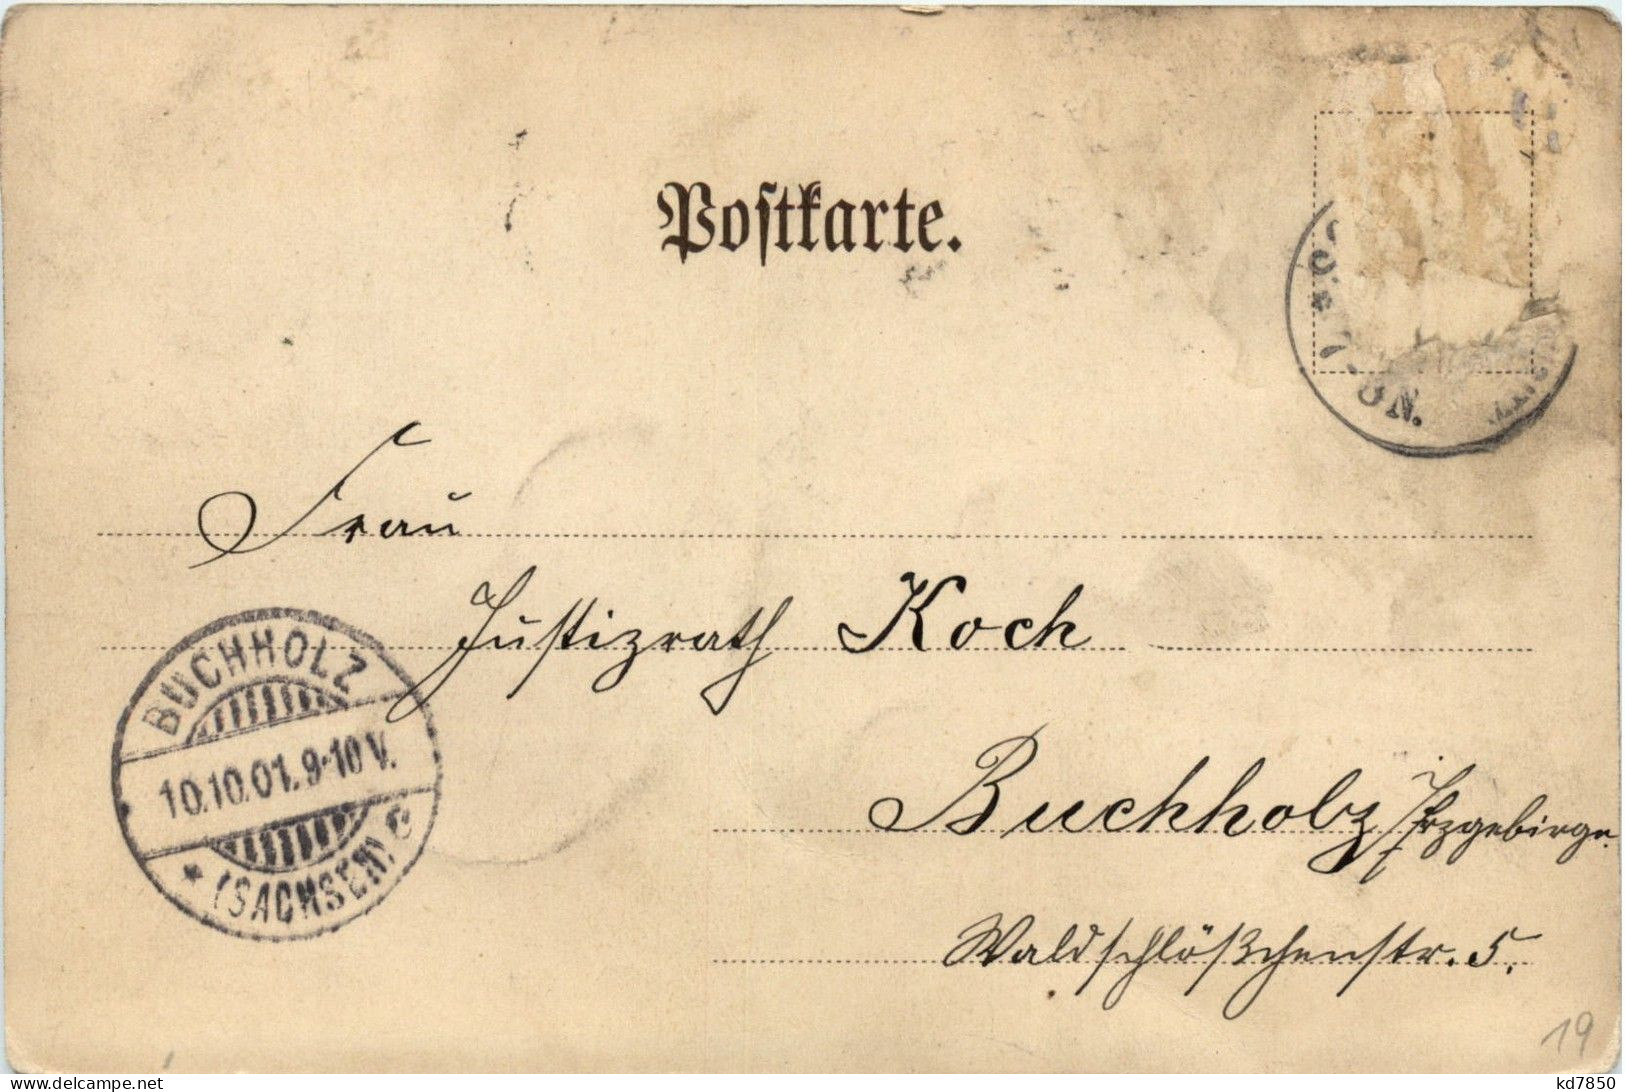 Postkarte.
Frau
Justizrath Koch
Buchholz Erzgebirge
Waldschlößchenstr. 5.
BUCHHOLZ
10.10.01. 9-10 V.
* (SACHSEN) c
N.
19
www.delcampe.net
kd7850